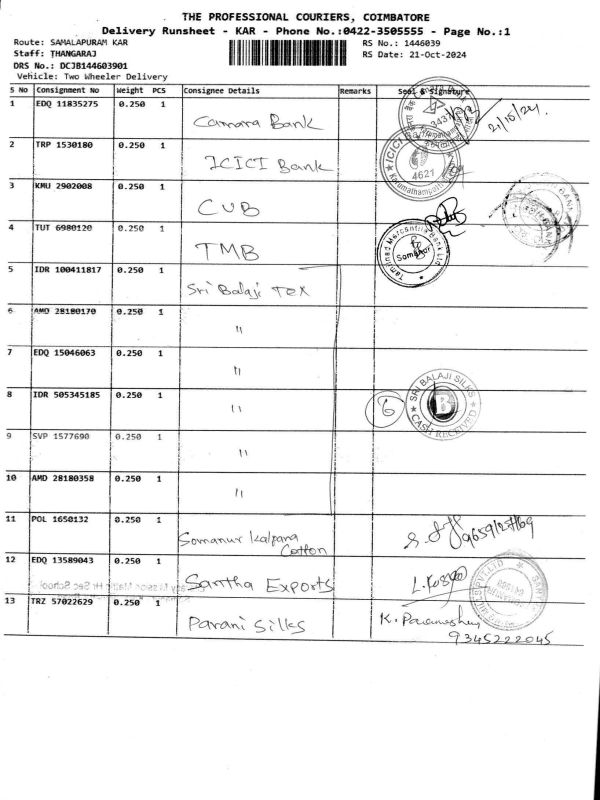 THE PROFESSIONAL COURIERS, COIMBATORE
Delivery Runsheet - KAR - Phone No.:0422-3505555 - Page No.:1
Route: SAMALAPURAM KAR
RS No.: 1446039
Staff: THANGARAJ
RS Date: 21-Oct-2024
DRS No.: DCJB144603901
Vehicle: Two Wheeler Delivery
S No Consignment No Weight PCS Consignee Details Remarks Seal & Signature
1 EDQ 11835275 0.250 1 Canara Bank 21/10/24
2 TRP 1530180 0.250 1 ICICI Bank ICICI 4621
3 KMU 2902008 0.250 1 CUB
4 TUT 6980120 0.250 1 TMB Tamilnad Mercantile Bank Ltd Somanur
5 IDR 100411817 0.250 1 Sri Balaji Tex
6 AMD 28180170 0.250 1 "
7 EDQ 15046063 0.250 1 "
8 IDR 505345185 0.250 1 " 6 SRI BALAJI SILKS B CASH RECEIVED
9 SVP 1577690 0.250 1 "
10 AMD 28180358 0.250 1 "
11 POL 1650132 0.250 1 Somanur Kalpana Cotton
12 EDQ 13589043 0.250 1 Santha Exports
13 TRZ 57022629 0.250 1 Parani Silks K. Parameshwy
9345222045